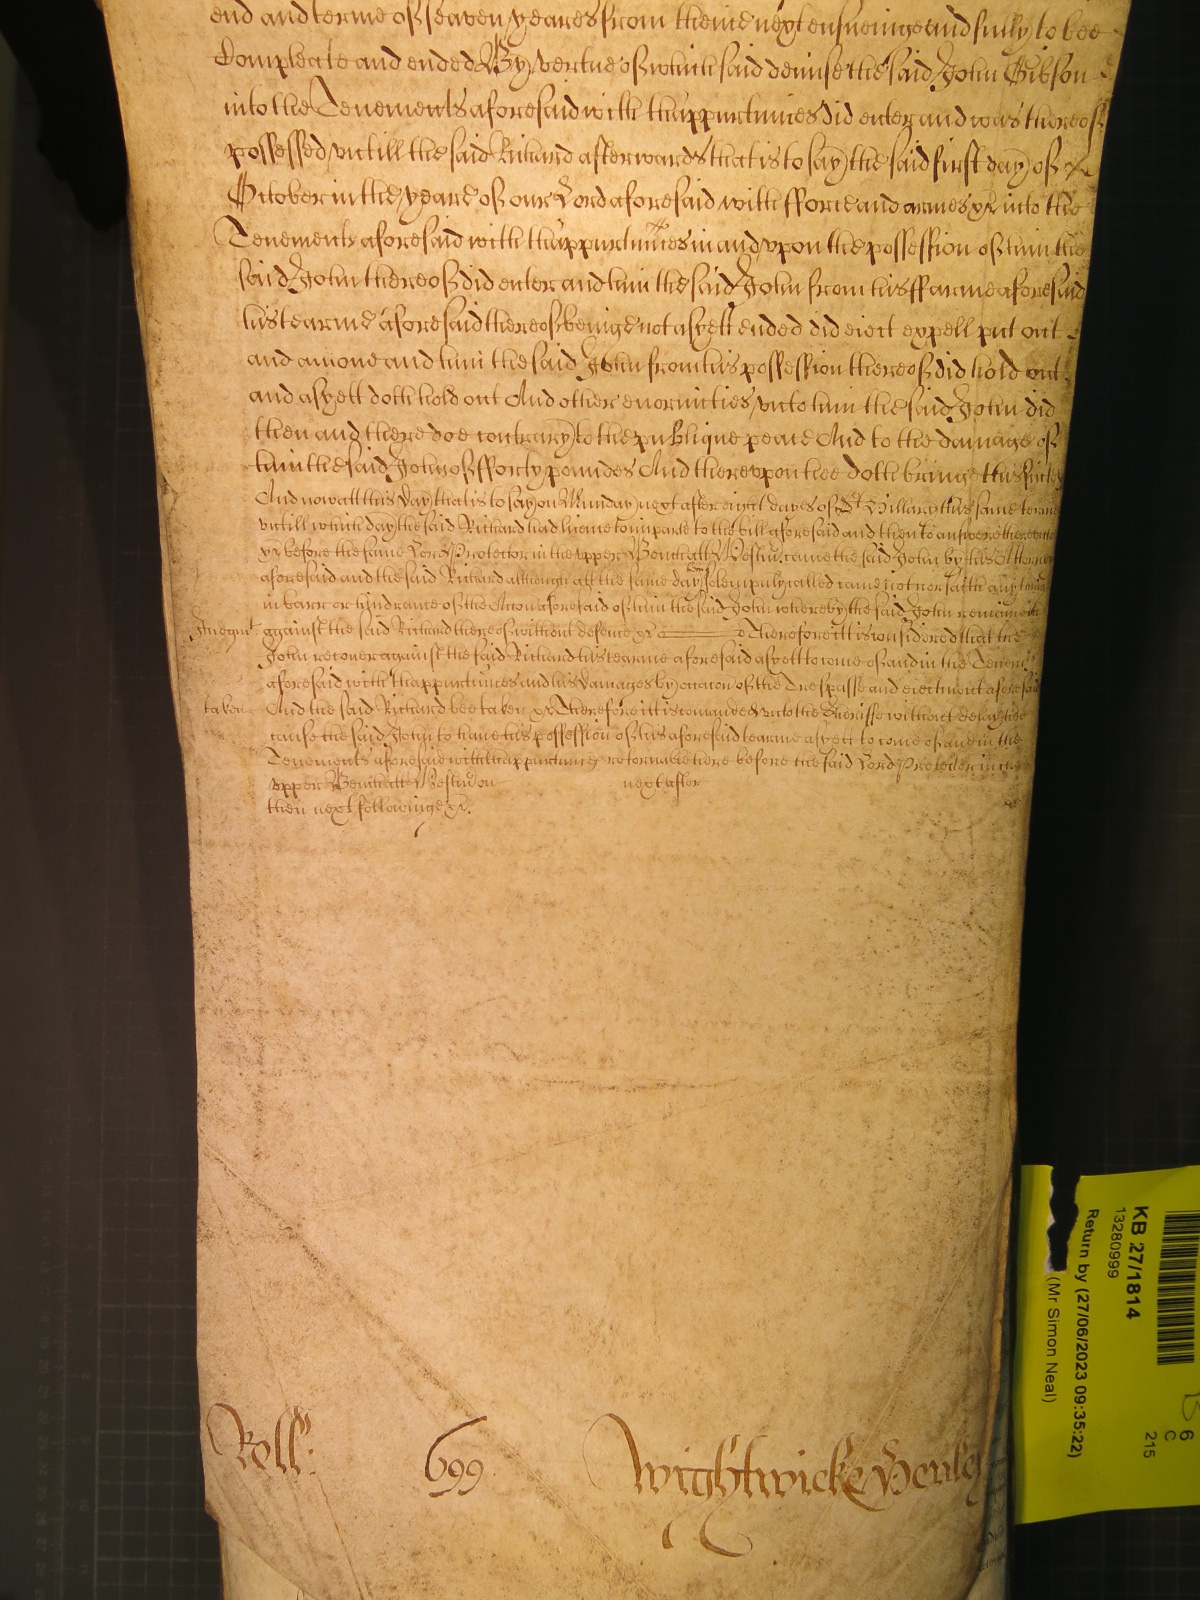 end and terme of seaven yeares from thence next ensueinge and fully to bee
Compleate and ended By vertue of which said demise the said John Gibson
into the Tenements aforesaid with thappurtnnces did enter and was thereof
possessed vntill the said Richard afterwards that is to say the said first day of
October in the yeare of our Lord aforesaid with fforce and armes &c into the
Tenements aforesaid with thappurtnnces in and vpon the possession of him the
said John thereof did enter and him the said John from his ffarme aforesaid
his tearme aforesaid thereof beinge not as yett ended did eiect expell put out
and amove and him the said John from his possession thereof did hold out
and as yett doth hold out And other enormities vnto him the said John did
then and there doe contrary to the publique peace And to the damage of
him the said John of fforty poundes And therevpon hee doth bringe this suite
And now att this day that is to say on Munday next after eight dayes of St Hillary this same terme
vntill which day the said Richard had licence to imparle to the bill aforesaid and then to answere therevnto
&c before the same Lord Protector in the vpper Bench att Westmr. came the said John by his Attorney
aforesaid and the said Richard although att the same day solempnly called came not nor saith any thinge
in barr or hindrance of the Accon aforesaid of him the said John whereby the said John remaineth
Iudgmt against the said Richard thereof without defence &c Therefore itt is considered that the
John recover against the said Richard his tearme aforesaid as yett to come of and in the Tenemts
aforesaid with thappurtnnces and his damages by occacon of the Trespasse and eiectment aforesaid
taken And the said Richard bee taken &c Therefore itt is comanded vnto the Sheriffe without delay hee
cause the said John to have his possession of his aforesaid tearme as yett to come of and in the
Tenements aforesaid with thappurtnnces retornable here before the said Lord Protector in the
vpper Bench att Westmr. on next after
then next followinge &c.
Roll: 699 Wightwicke Henley
KB 27/1814
13280999
Return by (27/06/2023 09:35:22)
(Mr Simon Neal)
6
C
215